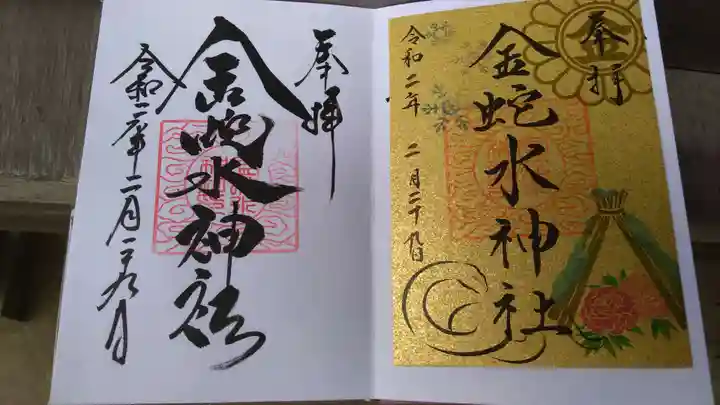 奉拝
金蛇水神社
令和二年二月二十九日
奉拝
金蛇水神社
令和二年 二月二十九日